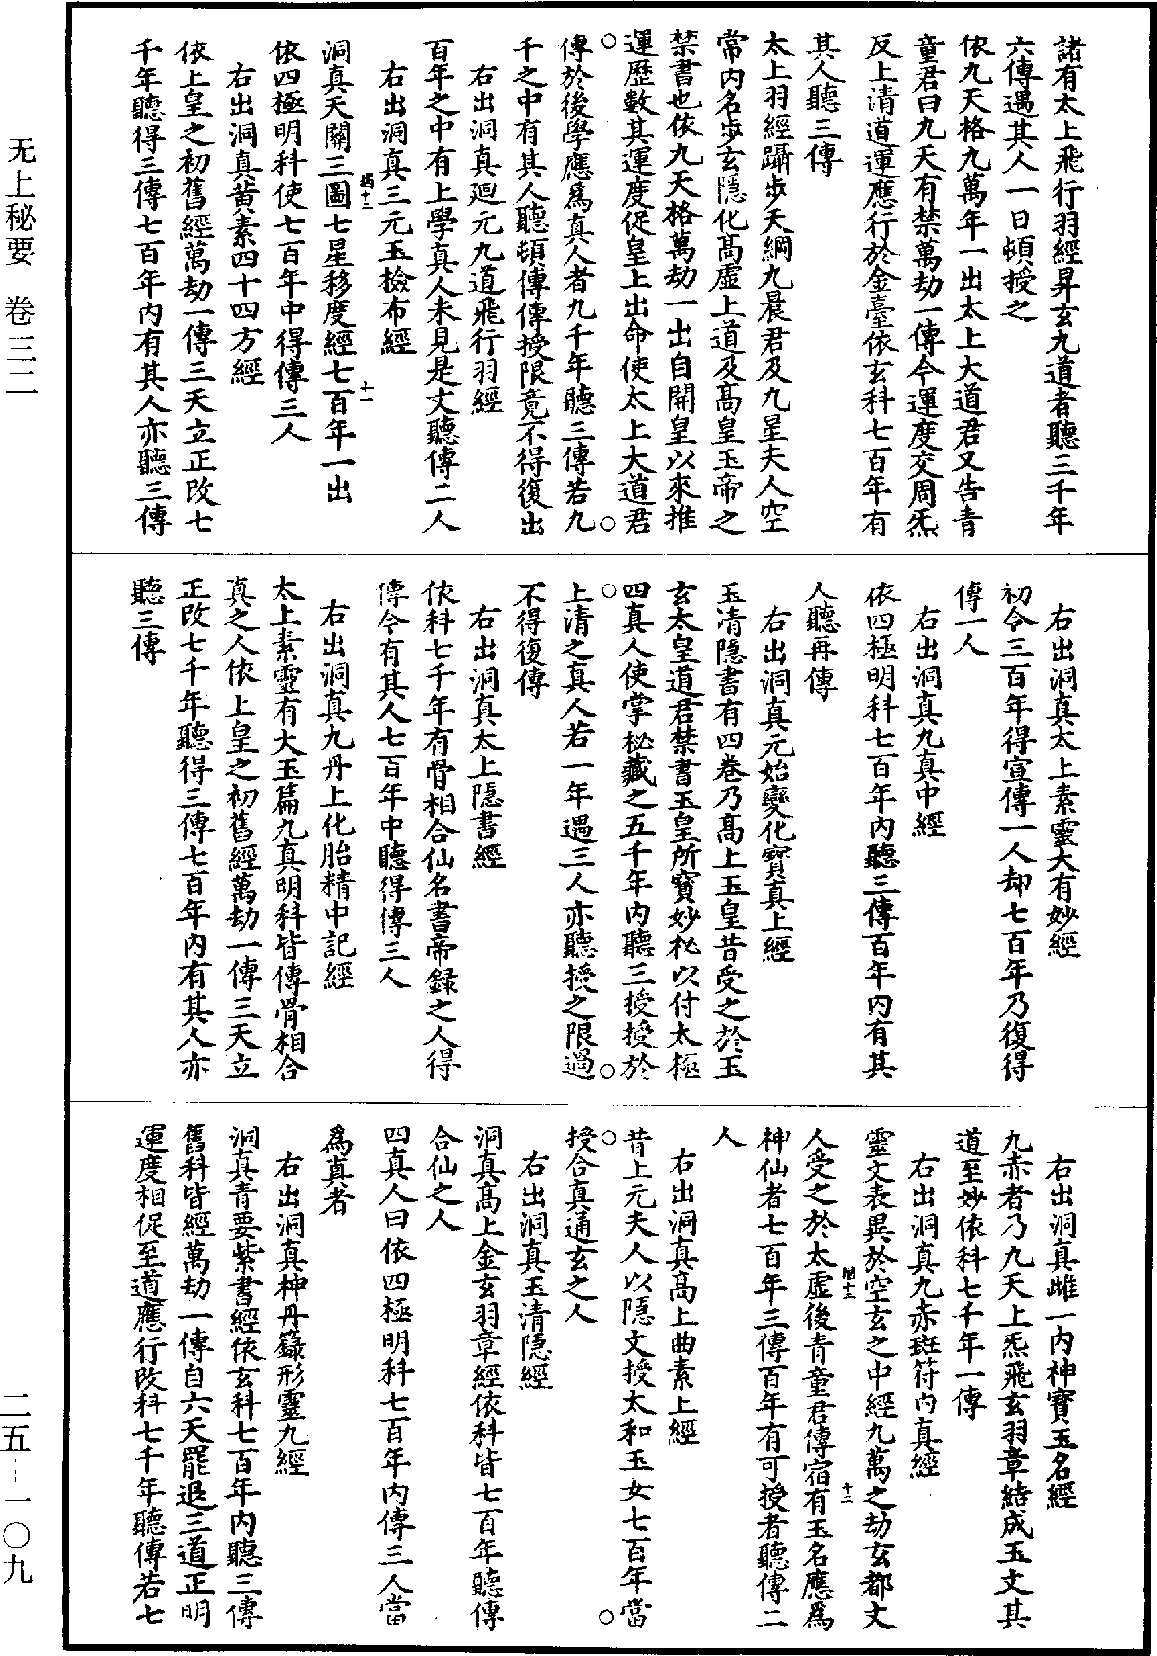 諸有太上飛行羽經昇玄九道者聽三千年
六傳遇其人一日頓授之
依九天格九萬年一出太上大道君又告青
童君曰九天有禁萬劫一傳今運度交周炁
反上清道運應行於金臺依玄科七百年有
其人聽三傳
太上羽經躡步天綱九晨君及九星夫人空
常內名步玄隱化高虛上道及高皇玉帝之
禁書也依九天格萬劫一出自開皇以來推
運歷數其運度促皇上出命使太上大道君
傳於後學應為真人者九千年聽三傳若九
千之中有其人聽頓傳傳授限竟不得復出
右出洞真迴元九道飛行羽經
百年之中有上學真人未見是文聽傳二人
右出洞真三元玉檢布經
洞真天關三圖七星移度經七百年一出
十一
依四極明科使七百年中得傳三人
右出洞真黃素四十四方經
依上皇之初舊經萬劫一傳三天立正改七
千年聽得三傳七百年內有其人亦聽三傳
右出洞真太上素靈大有妙經
初令三百年得宣傳一人却七百年乃復得
傳一人
右出洞真九真中經
依四極明科七百年內聽三傳百年內有其
人聽再傳
右出洞真元始變化寶真上經
玉清隱書有四卷乃高上玉皇昔受之於玉
玄太皇道君禁書玉皇所寶妙祕以付太極
四真人使掌祕藏之五千年內聽三授授於
上清之真人若一年遇三人亦聽授之限過
不得復傳
右出洞真太上隱書經
依科七千年有骨相合仙名書帝錄之人得
傳今有其人七百年中聽得傳三人
右出洞真九丹上化胎精中記經
太上素靈有大玉篇九真明科皆傳骨相合
真之人依上皇之初舊經萬劫一傳三天立
正改七千年聽得三傳七百年內有其人亦
聽三傳
右出洞真雌一內神寶玉名經
九赤者乃九天上炁飛玄羽章結成玉文其
道至妙依科七千年一傳
右出洞真九赤斑符內真經
靈文表異於空玄之中經九萬之劫玄都丈
十二
人受之於太虛後青童君傳宿有玉名應為
神仙者七百年三傳百年有可授者聽傳二
人
右出洞真高上曲素上經
昔上元夫人以隱文授太和玉女七百年當
授合真通玄之人
右出洞真玉清隱經
洞真高上金玄羽章經依科皆七百年聽傳
合仙之人
四真人曰依四極明科七百年內傳三人當
為真者
右出洞真神丹籙形靈九經
洞真青要紫書經依玄科七百年內聽三傳
舊科皆經萬劫一傳自六天罷退三道正明
運度相促至道應行改科七千年聽傳若七
无上秘要 卷三二
二五－一〇九